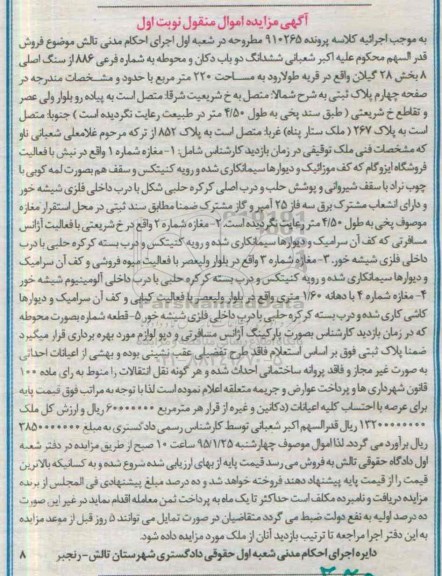 آگهی مزایده اموال منقول نوبت اول
به موجب اجرائیه کلاسه پرونده ۹۱۰۲۶۵ مطروحه در شعبه اول اجرای احکام مدنی تالش موضوع فروش
قدر السهم محکوم علیه اکبر شعبانی ششدانگ دو باب دکان و محوطه به شماره فرعی ۸۸۶ از سنگ اصلی
۸ بخش ۲۸ گیلان واقع در قریه طولارود به مساحت ۲۲۰ متر مربع با حدود و مشخصات مندرجه در
صفحه چهارم پلاک ثبتی به شرح شمالا: متصل به خ شریعیت شرقا: متصل است به پیاده رو بلوار ولی عصر
و تقاطع خ شریعتی ( طبق سند پخی به طول ۴/۵۰ متر در طبیعت رعایت نگردیده است ) جنوبا: متصل
است به پلاک ۲۶۷ ( ملک ستار پناه) غربا: متصل است به پلاک ۸۵۲ از ترکه مرحوم غلامعلی شعبانی ناو
که مشخصات فنی ملک توقیفی در زمان بازدید کارشناس شامل: ۱-مغازه شماره ۱ واقع در نبش با فعالیت
فروشگاه ایزوگام که کف موزائیک و دیوارها سیمانکاری شده و رویه کنیتکس و سقف هم بصورت لمه کوبی با
چوب نراد با سقف شیروانی و پوشش حلب و درب اصلی کرکره حلبی شکل با درب داخلی فلزی شیشه خور
و دارای انشعاب مشترک برق سه فاز ۲۵ آمپر و گاز مشترک ضمنا مطابق سند ثبتی در محل استقرار مغازه
موصوف پخی به طول ۴/۵۰ متر رعایت نگردیده است. ۲- مغازه شماره ۲ واقع در خ شریعتی با فعالیت آژانس
مسافرتی که کف آن سرامیک و دیوارها سیمانکاری شده و رویه کنیتکس و درب بسته کرکره حلبی با درب
داخلی فلزی شیشه خور. ۳- مغازه شماره ۳ واقع در بلوار ولیعصر با فعالیت میوه فروشی و کف آن سرامیک
و دیوارها سیمانکاری شده و رویه کنیتکس و درب بسته کر کره حلبی با درب داخلی آلومینیوم شیشه خور
۴- مغازه شماره ۴ با دهانه ۱/۶۰ متری واقع در بلوار ولیعصر با فعالیت کبابی و کف آن سرامیک و دیوارها
کاشی کاری شده و درب بسته کر کره حلبی با درب داخلی فلزی شیشه خور ۵- قطعه شماره بصورت محوطه
که در زمان بازدید کارشناس بصورت پارکینگ آژانس مسافرتی و دپو لوازم مورد بهره برداری قرار میگیرد
ضمنا پلاک ثبتی فوق بر اساس استعلام فاقد طرح تفصیلی عقب نشینی بوده و بهشی از اعیانات احداثی
به صورت غیر مجاز و فاقد پروانه ساختمانی احداث شده و هر گونه نقل انتقالات را منوط به رای ماده ۱۰۰
قانون شهرداری ها و پرداخت عوارض و جریمه متعلقه اعلام نموده است لذا با توجه به مراتب فوق قیمت پایه
برای عرصه با احتساب کلیه اعیانات (دکانین و غیره از قرار هر مترمربع ۶۰۰۰۰۰۰۰ ریال و ارزش کل ملک
۱۳۲۰۰۰۰۰۰۰۰ ریال قدرالسهم اکبر شعبانی توسط کارشناس رسمی دادگستری به مبلغ ۳۸۵۰۰۰۰۰۰۰
ریال برآورد می گردد. لذا اموال موصوف چهارشنبه ۹۵/۱/۲۵ ساعت ۱۰ صبح از طریق مزایده در دفتر شعبه
اول دادگاه حقوقی تالش به فروش می رسد قیمت پایه از بهای ارزیابی شده شروع شده و به کسانیکه بالاترین
قیمت را از قیمت پایه پیشنهاد دهند فروخته خواهد شد و ده درصد مبلغ پیشنهادی فی المجلس از برنده
مزایده دریافت و نامبرده مکلف است حداکثر تا یک ماه به پرداخت ثمن معامله اقدام نماید در غیر این صورت
ده درصد اولیه به نفع دولت ضبط می گردد متقاضیان در صورت تمایل می توانند ۵ روز قبل از موعد مزایده
به این دفتر اجرا مراجعه تا ترتیب بازدید آنان از ملک مورد مزایده داده شود.
دایره اجرای احکام مدنی شعبه اول حقوقی دادگستری شهرستان تالش-رنجبر ۸